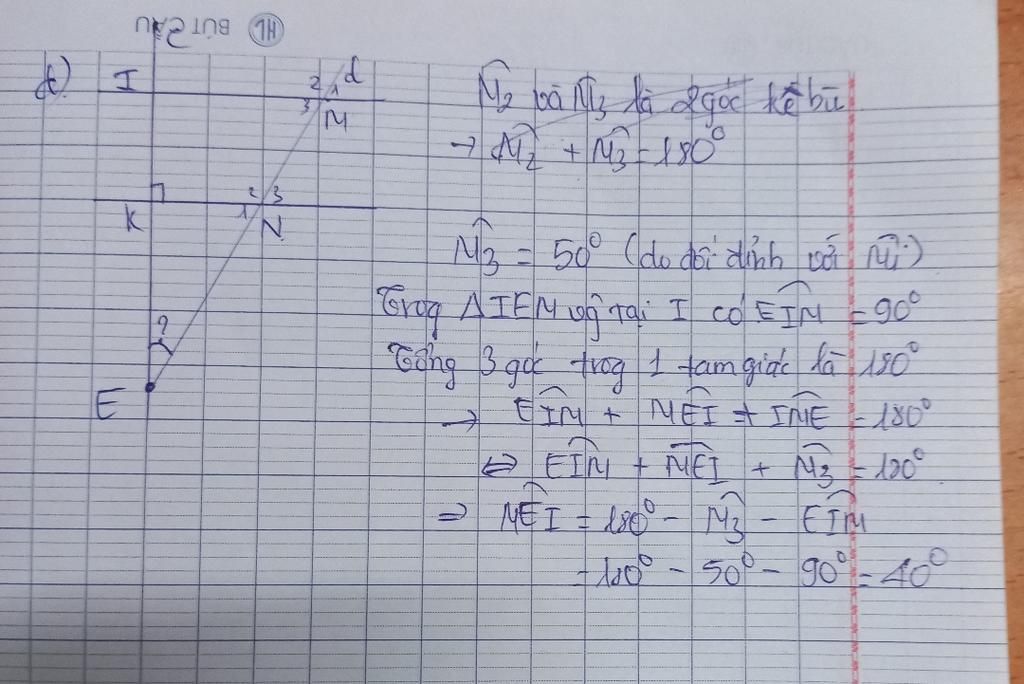 BÚT SÁU HL
c)
I
2 1 d
3 M
K
2 3
1 N
?
E
M̂₂ và M̂₃ là 2 góc kề bù
→ M̂₂ + M̂₃ = 180°
M̂₃ = 50° (do đối đỉnh với M̂₁)
Trog ΔIEM vg tại I có EÎM = 90°
Tổng 3 góc trog 1 tam giác là 180°
→ EÎM + MÊI + IM̂E = 180°
⇔ EÎM + MÊI + M̂₃ = 180°
⇒ MÊI = 180° - M̂₃ - EÎM
= 180° - 50° - 90° = 40°